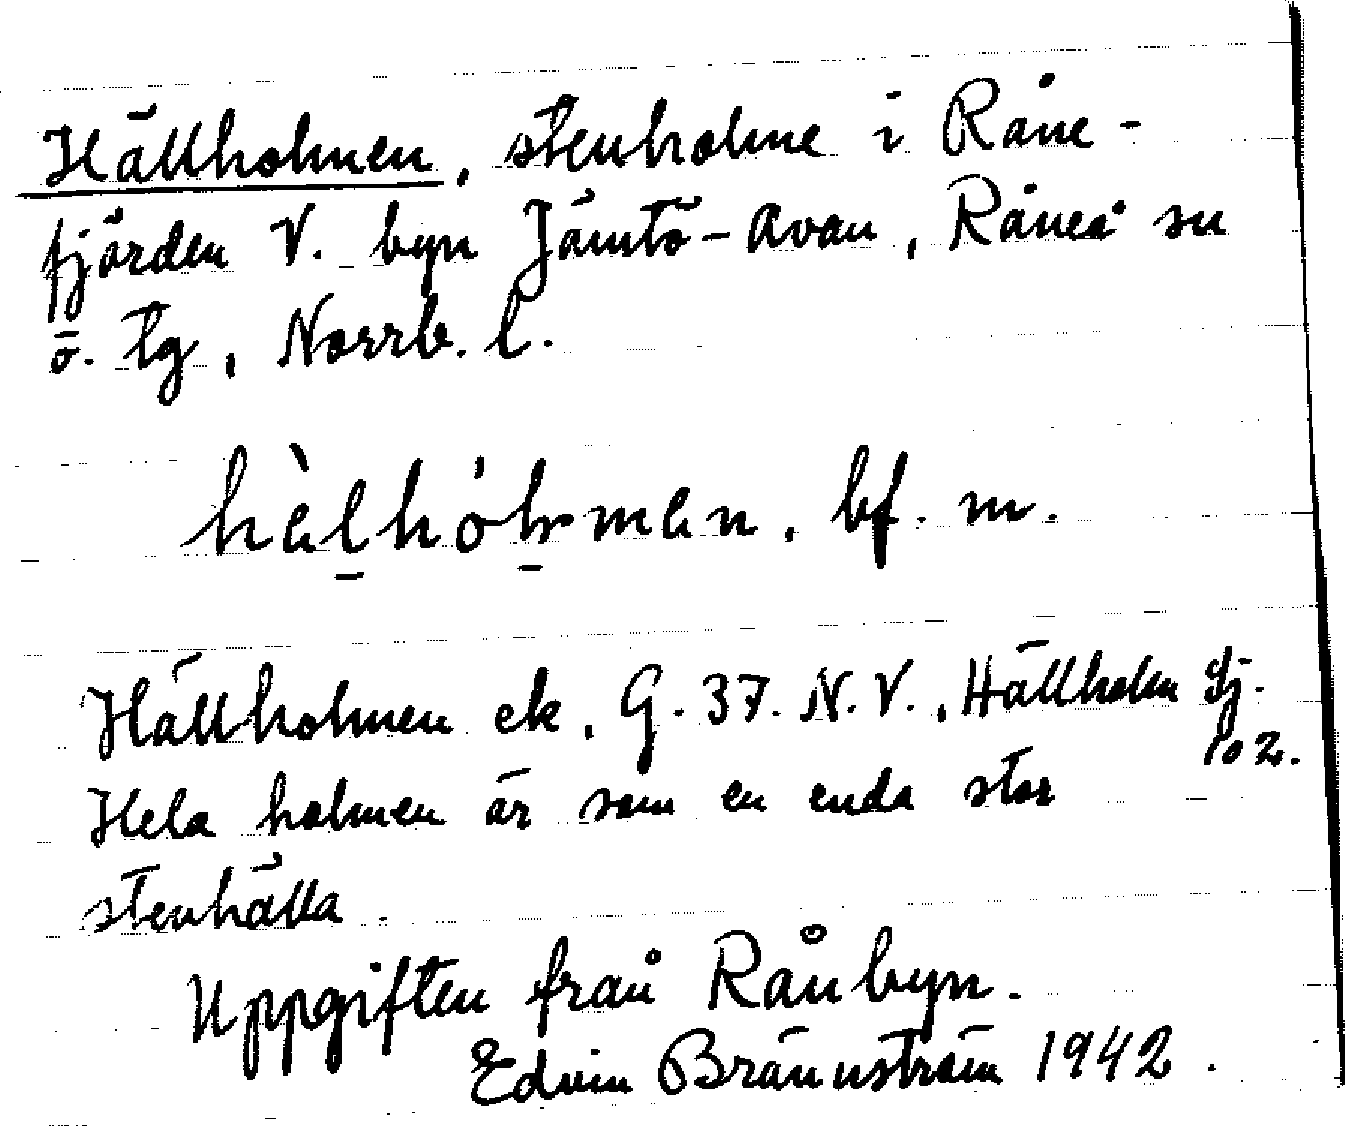 Hällholmen, stenholme i Råne-
fjärden V. byn Jämtö-Avan, Råneå sn
ö. tg, Norrb. l.
hèlhólmen, bf. m.
Hällholmen ek, G. 37. N.V., Hällholm Sj.
102.
Hela holmen är som en enda stor
stenhälla.
Uppgiften från Rånbyn.
Edvin Brännström 1942.